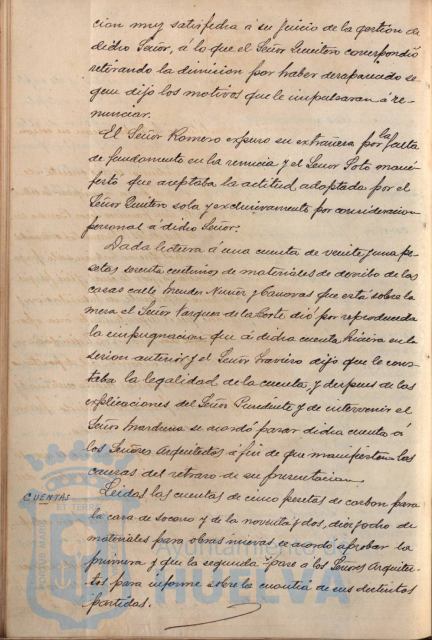 cion muy satisfecha á su juicio de la gestión de
dicho Señor, á lo que el Señor Quintero correspondió
retirando la dimision por haber desaparecido se-
gun dijo los motivos que le impulsaran á re-
nunciar.
El Señor Romero expuso su extrañeza por la falta
de fundamento en la renuncia y el Señor Soto mani-
festó que aceptaba la actitud adoptada por el
Señor Quintero sola y exclusivamente por consideracion
personal á dicho Señor.
Dada lectura á una cuenta de veinte y una pe-
setas sesenta centimos de materiales de derribo de las
casas calle Mendez Nuñez y Canovas que está sobre la
mesa el Señor Vazquez de la Corte dió por reproducida
la impugnacion que á dicha cuenta hiciera en la
sesion anterior y el Señor dijo que le cons-
taba la legalidad de la cuenta, y despues de las
explicaciones del Señor Presidente y de intervenir el
Señor se acordó pasar dicha cuenta á
los Señores Arquitectos á fin de que manifiesten las
causas del retraso de su presentacion.
CUENTAS
Leidas las cuentas de cinco pesetas de carbon para
la casa de socorro y de la noventa y dos, diez y ocho de
materiales para obras nuevas se acordó aprobar la
primera y que la segunda pase á los Señores Arquitec-
tos para informe sobre la cuantia de sus distintas
partidas.
Ayuntamiento de
HUELVA